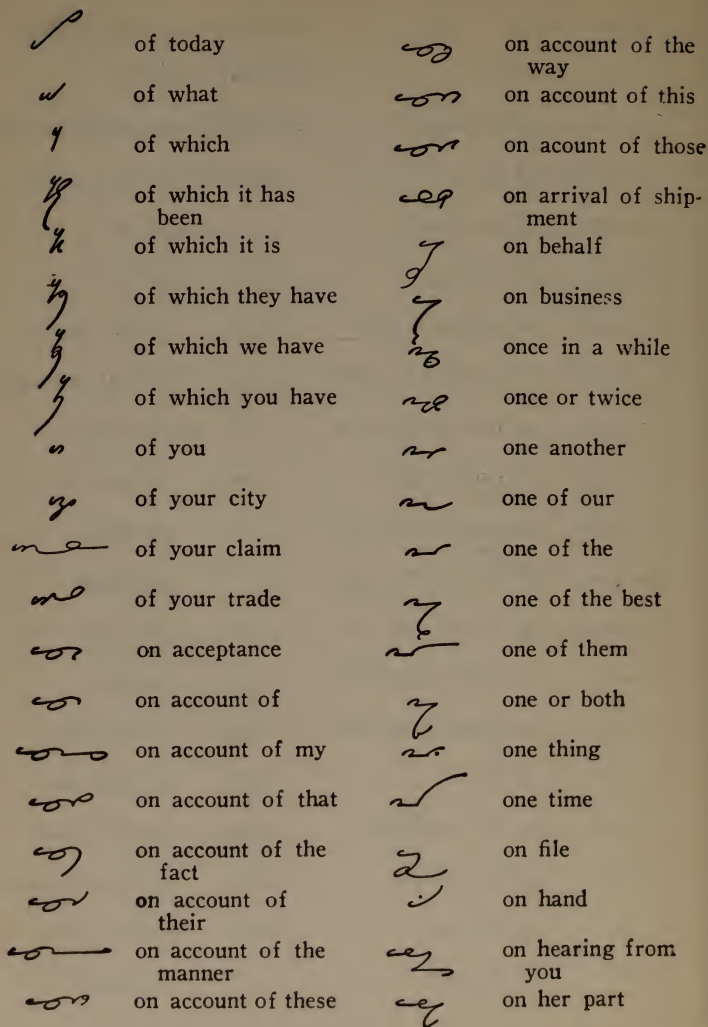 of today
of what
of which
of which it has
been
of which it is
of which they have
of which we have
of which you have
of you
of your city
of your claim
of your trade
on acceptance
on account of
on account of my
on account of that
on account of the
fact
on account of
their
on account of the
manner
on account of these
on account of the
way
on account of this
on acount of those
on arrival of ship-
ment
on behalf
on business
once in a while
once or twice
one another
one of our
one of the
one of the best
one of them
one or both
one thing
one time
on file
on hand
on hearing from
you
on her part